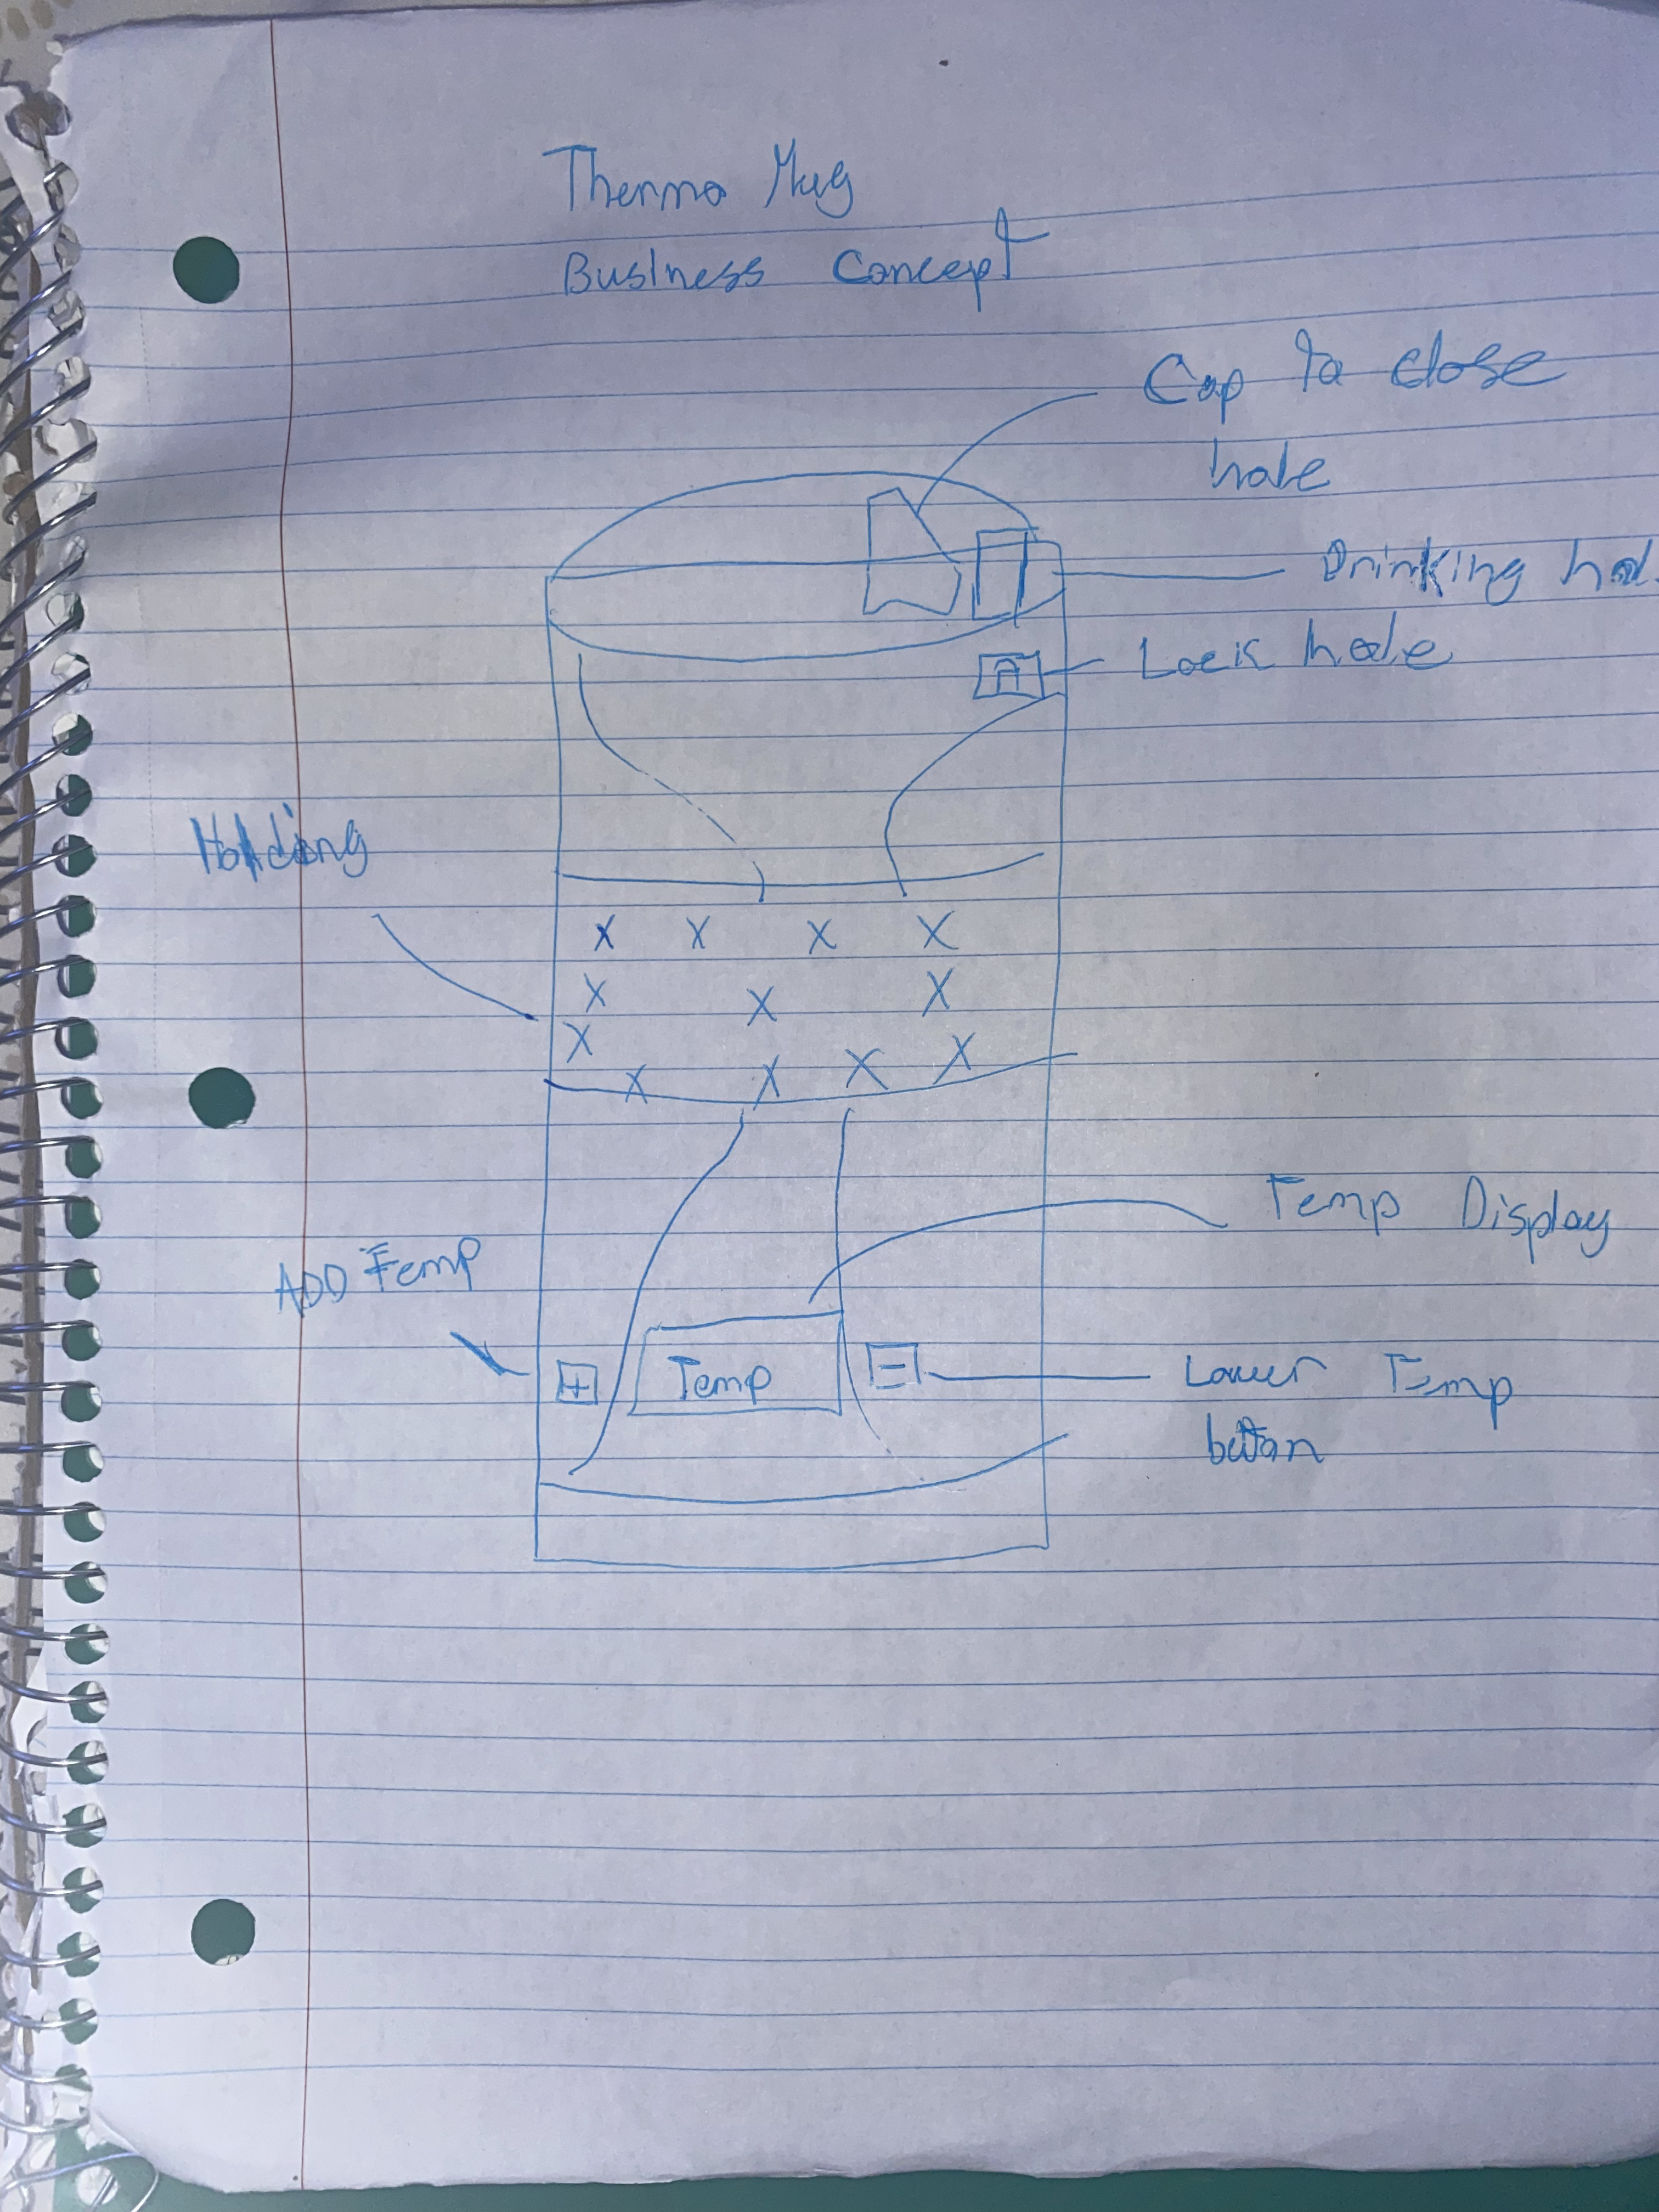 Thermo Mug
Business Concept
Cap to close
hole
Drinking hol
Lock hole
Holding
X X X X
X X X
X
X X X X
Temp Display
ADD Temp
+ Temp -
Lower Temp
button